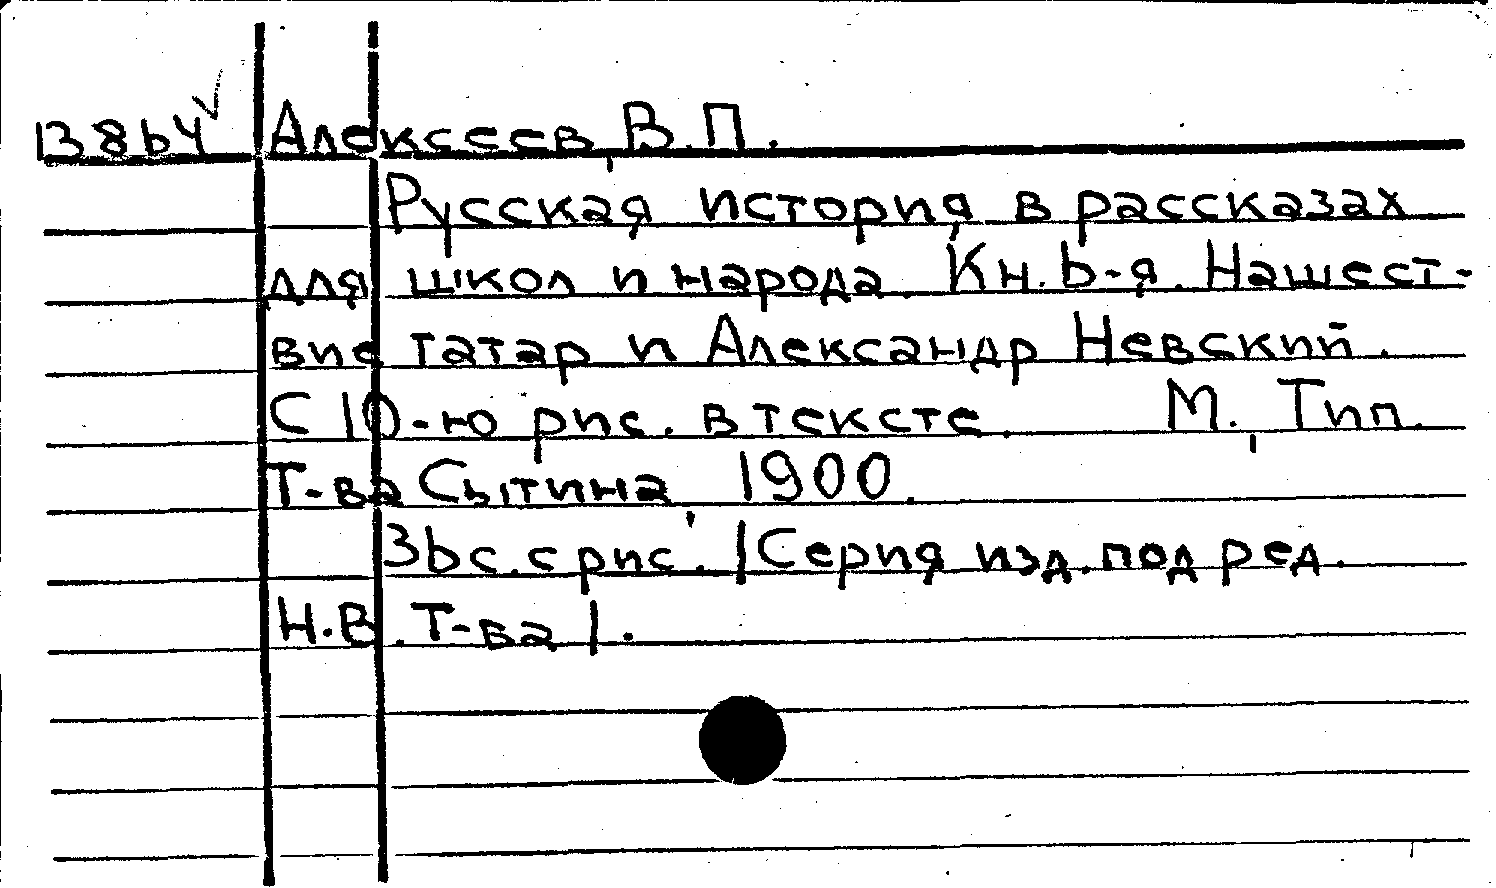 13864 Алексеев, В.П.
Русская история в рассказах
для школ и народа. Кн. 6-я. Нашест-
вие татар и Александр Невский.
С 10-ю рис. в тексте. М., Тип.
Т-ва Сытина, 1900.
36с. с рис. /Серия изд. под ред.
Н.В. Т-ва/.